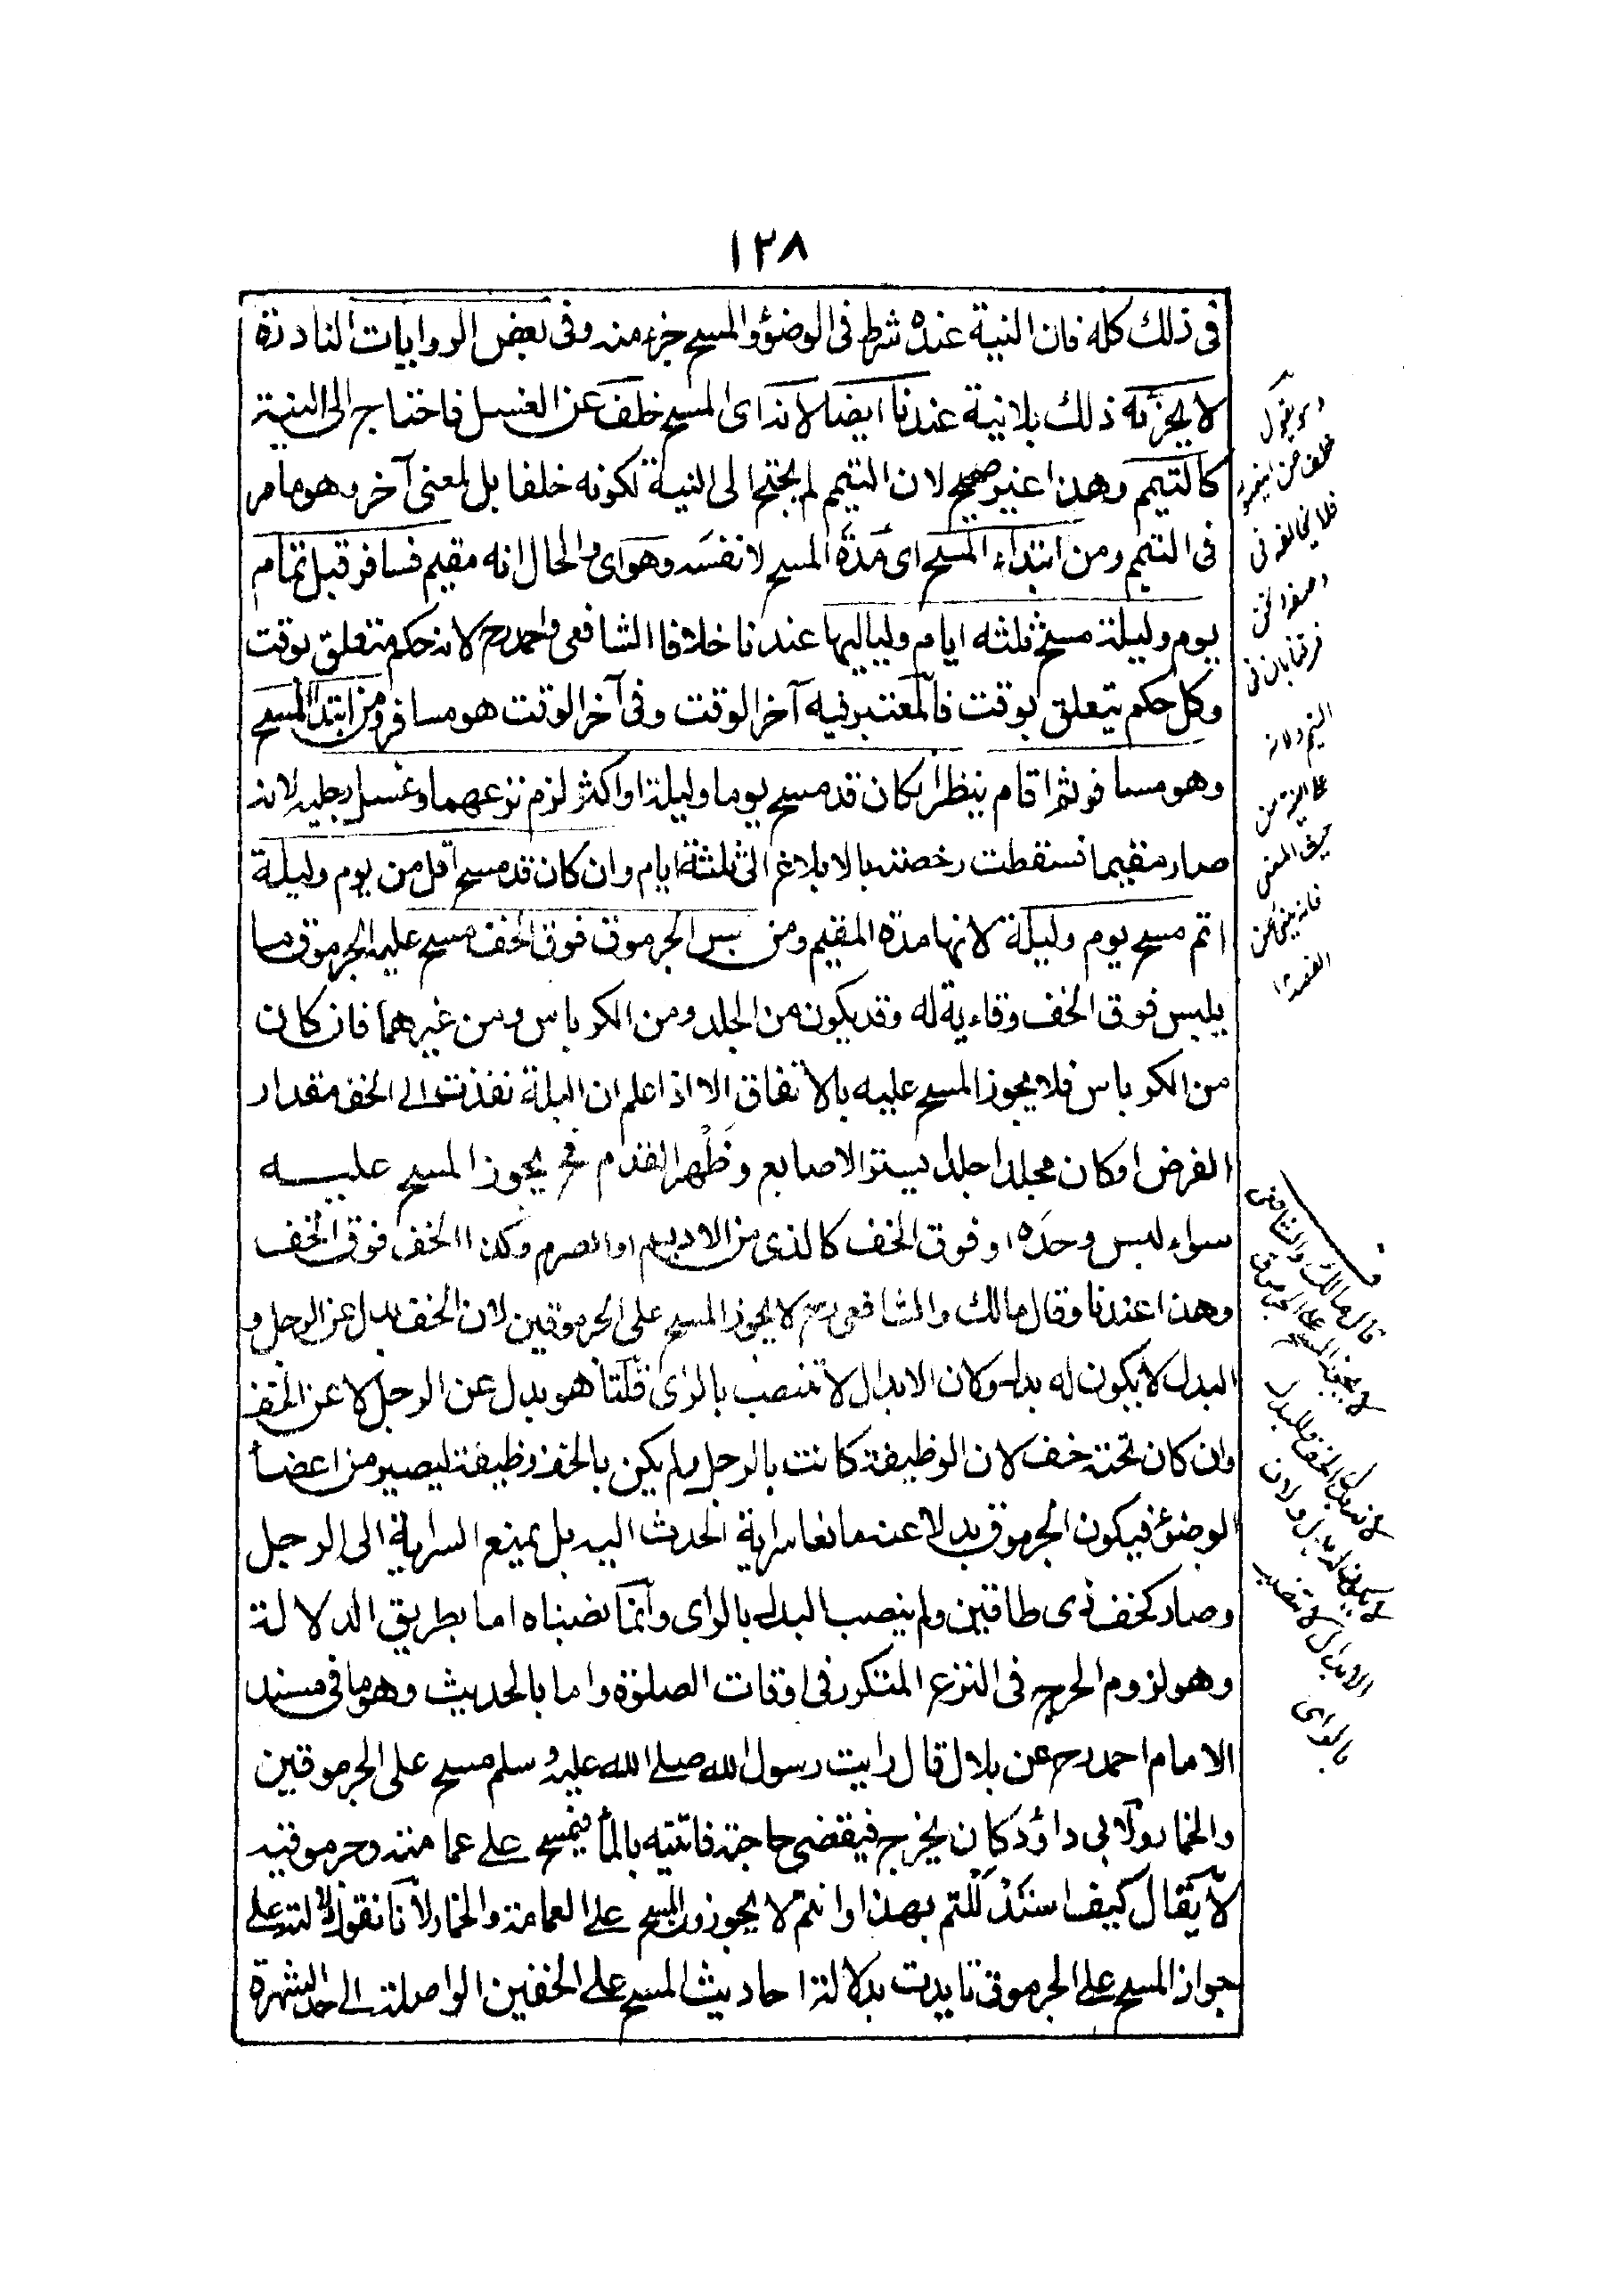 ١٢٨
فى ذلك كله فان النية عنده شرط فى الوضوء والمسح جزء منه وفى بعض الروايات النادرة
لا يجزئه ذلك بلا نية عندنا ايضا لانه اى المسح خلف عن الغسل فاحتاج الى النية
كالتيمم وهذا غير صحيح لان التيمم لم يحتج الى النية لكونه خلفا بل لمعنى آخر وهو ما مر
فى التيمم ومن ابتداء المسح اى مدة المسح لا نفسه وهو اى والحال انه مقيم فسافر قبل تمام
يوم وليلة مسح ثلثة ايام ولياليها عندنا خلافا الشافعى واحمد رح لانه حكم متعلق بوقت
وكل حكم يتعلق بوقت فالمعتبر فيه آخر الوقت وفى آخر الوقت هو مسافر ومن ابتدأ المسح
وهو مسافر ثم اقام ينظر ان كان قد مسح يوما وليلة او اكثر لزم نزعهما وغسل رجليه لانه
صار مقيما فسقطت رخصته بالابلاغ الى ثلثة ايام وان كان قد مسح اقل من يوم وليلة
اتم مسح يوم وليلة لانها مدة المقيم ومن لبس الجرموق فوق الخف مسح عليه الجرموق ما
يلبس فوق الخف وقاية له وقد يكون من الجلد ومن الكرباس ومن غيرهما فان كان
من الكرباس فلا يجوز المسح عليه بالاتفاق الا اذا علم ان البلة نفذت الى الخف مقدار
الفرض او كان مجلدا جلدا يستر الاصابع وظهر القدم فح يجوز المسح عليه
سواء لبس وحده او فوق الخف كالذى من الاديم او الصرم وكذا الخف فوق الخف
وهذا عندنا وقال مالك والشافعى رح لا يجوز المسح على الجرموقين لان الخف بدل عن الرجل و
البدل لا يكون له بدل ولان الابدال لا تنصب بالراى قلنا هو بدل عن الرجل لا عن الخف
وان كان تحته خف لان الوظيفة كانت بالرجل ولم يكن بالخف وظيفة ليصير من اعضاء
الوضوء فيكون الجرموق بدلا عنه مانعا سراية الحدث اليه بل يمنع السراية الى الرجل
وصار كخف ذى طاقين ولم ينصب البدل بالراى وانما نصبناه اما بطريق الدلالة
وهو لزوم الحرج فى النزع المتكرر فى اوقات الصلوة واما بالحديث وهو ما فى مسند
الامام احمد رح عن بلال قال رايت رسول الله صلى الله عليه وسلم مسح على الجرموقين
والخمار ولابى داؤد كان يخرج فيقضى حاجته فاتيه بالماء فيمسح على عمامته وجرموقيه
لا يقال كيف استدللتم بهذا وانتم لا يجوزون المسح على العمامة والخمار لانا نقول دلالته على
جواز المسح على الجرموق تايدت بدلالة احاديث المسح على الخفين الواصلة الى حد الشهرة
فلا يخالفه فى
قال مالك والشافعى
لا يجوز المسح على الجرموق
لانه بدل الخف والبدل
لا يكون له بدل ولان
الابدال لا تنصب
بالراى